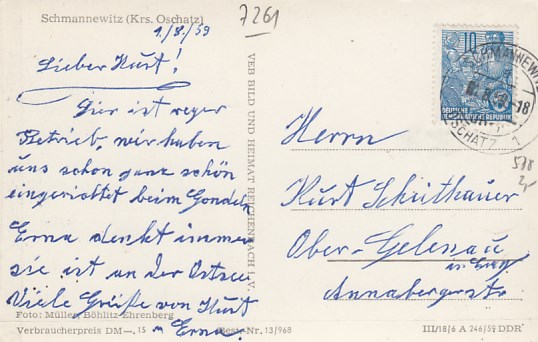 Schmannewitz (Krs. Oschatz)
7261
1./8./59
Lieber Kurt!
Hier ist reger
Betrieb, wir haben
uns schon ganz schön
eingerichtet beim Gondeln
Erna denkt immer
sie ist an der Ostsee
Viele Grüße von Kurt
u Erna.
Foto: Müller, Böhlitz-Ehrenberg
Verbraucherpreis DM —,15
Bestr-Nr. 13/968
VEB BILD UND HEIMAT REICHENBACH I. V.
10
DEUTSCHE
DEMOKRATISCHE REPUBLIK
SCHMANNEWITZ
-18
OSCHATZ 1
Herrn
Kurt Schithauer
Ober-Gelenau
im Erzg
Annabergerstr
III/18/6 A 246/59 DDR